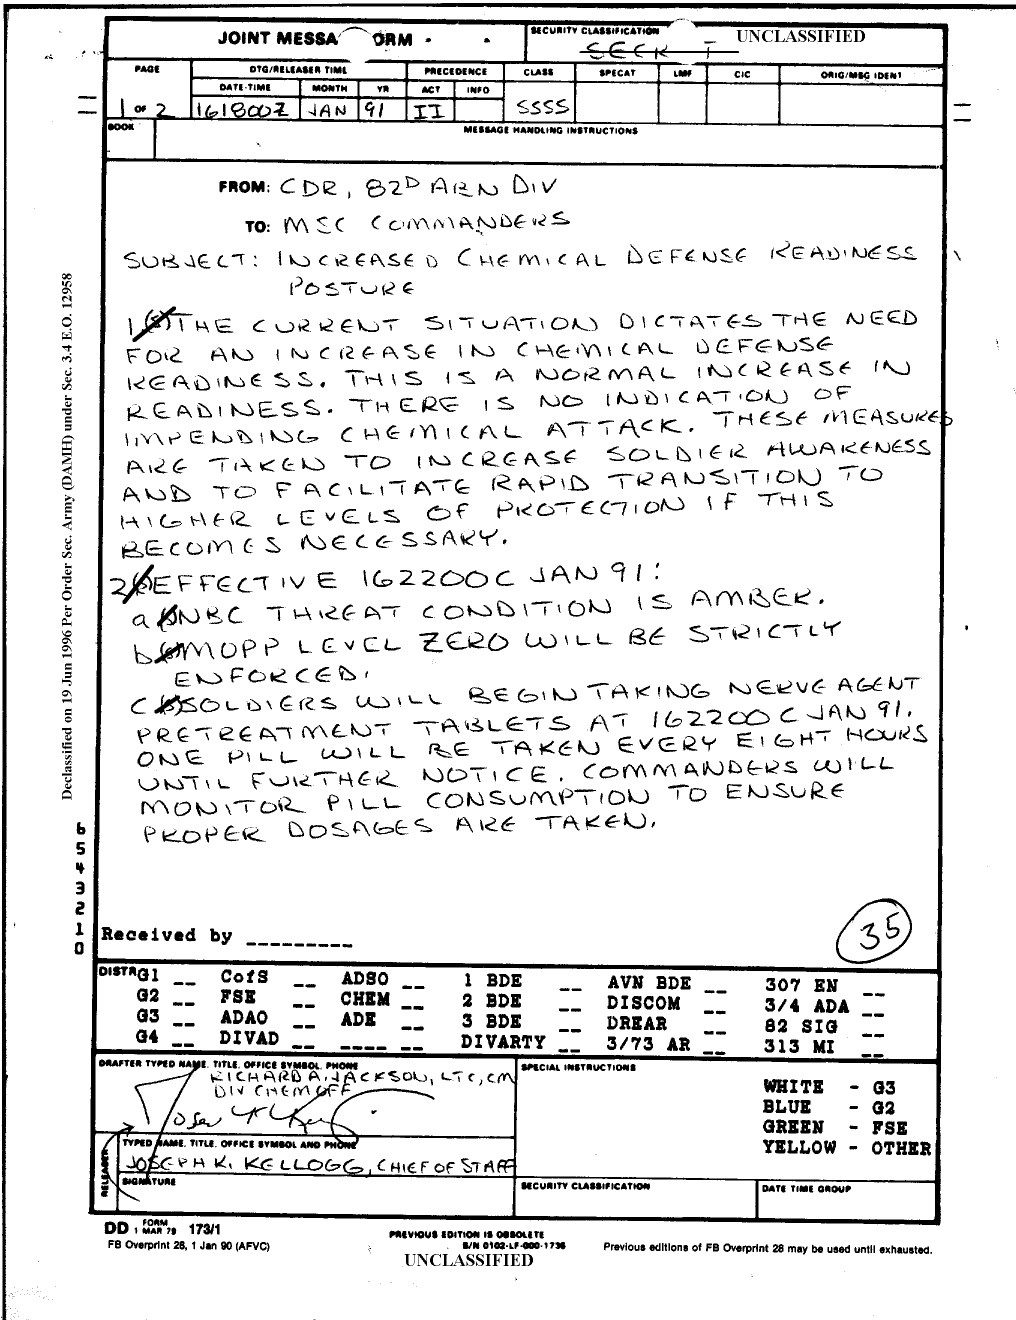 JOINT MESSA ORM
SECURITY CLASSIFICATION
UNCLASSIFIED
PAGE
DTG/RELEASER TIME
PRECEDENCE
CLASS
SPECAT
LMF
CIC
ORIG/MSG IDENT
DATE-TIME
MONTH
YR
ACT
INFO
1 OF 2
161800Z
JAN
91
II
SSSS
BOOK
MESSAGE HANDLING INSTRUCTIONS
FROM: CDR, 82D ABN DIV
TO: MSC COMMANDERS
SUBJECT: INCREASED CHEMICAL DEFENSE READINESS
POSTURE
1 (S) THE CURRENT SITUATION DICTATES THE NEED
FOR AN INCREASE IN CHEMICAL DEFENSE
READINESS. THIS IS A NORMAL INCREASE IN
READINESS. THERE IS NO INDICATION OF
IMPENDING CHEMICAL ATTACK. THESE MEASURES
ARE TAKEN TO INCREASE SOLDIER AWARENESS
AND TO FACILITATE RAPID TRANSITION TO
HIGHER LEVELS OF PROTECTION IF THIS
BECOMES NECESSARY.
2 EFFECTIVE 162200C JAN 91:
a NBC THREAT CONDITION IS AMBER.
b MOPP LEVEL ZERO WILL BE STRICTLY
ENFORCED.
C SOLDIERS WILL BEGIN TAKING NERVE AGENT
PRETREATMENT TABLETS AT 162200C JAN 91.
ONE PILL WILL BE TAKEN EVERY EIGHT HOURS
UNTIL FURTHER NOTICE. COMMANDERS WILL
MONITOR PILL CONSUMPTION TO ENSURE
PROPER DOSAGES ARE TAKEN.
Declassified on 19 Jun 1996 Per Order Sec. Army (DAMH) under Sec. 3.4 E.O. 12958
6
5
4
3
2
1
0
Received by _________
35
DISTR G1 __ CofS __ ADSO __ 1 BDE __ AVN BDE __ 307 EN __
G2 __ FSE __ CHEM __ 2 BDE __ DISCOM __ 3/4 ADA __
G3 __ ADAO __ ADE __ 3 BDE __ DREAR __ 82 SIG __
G4 __ DIVAD __ ____ __ DIVARTY __ 3/73 AR __ 313 MI __
DRAFTER TYPED NAME. TITLE. OFFICE SYMBOL. PHONE
RICHARD A. JACKSON, LTC, CM
DIV CHEM OFF
SPECIAL INSTRUCTIONS
WHITE - G3
BLUE - G2
GREEN - FSE
YELLOW - OTHER
RELEASER
TYPED NAME. TITLE. OFFICE SYMBOL AND PHONE
JOSEPH K. KELLOGG, CHIEF OF STAFF
SIGNATURE
SECURITY CLASSIFICATION
DATE TIME GROUP
DD FORM 1 MAR 79 173/1
FB Overprint 28, 1 Jan 90 (AFVC)
PREVIOUS EDITION IS OBSOLETE
S/N 0102-LF-000-1735
Previous editions of FB Overprint 28 may be used until exhausted.
UNCLASSIFIED